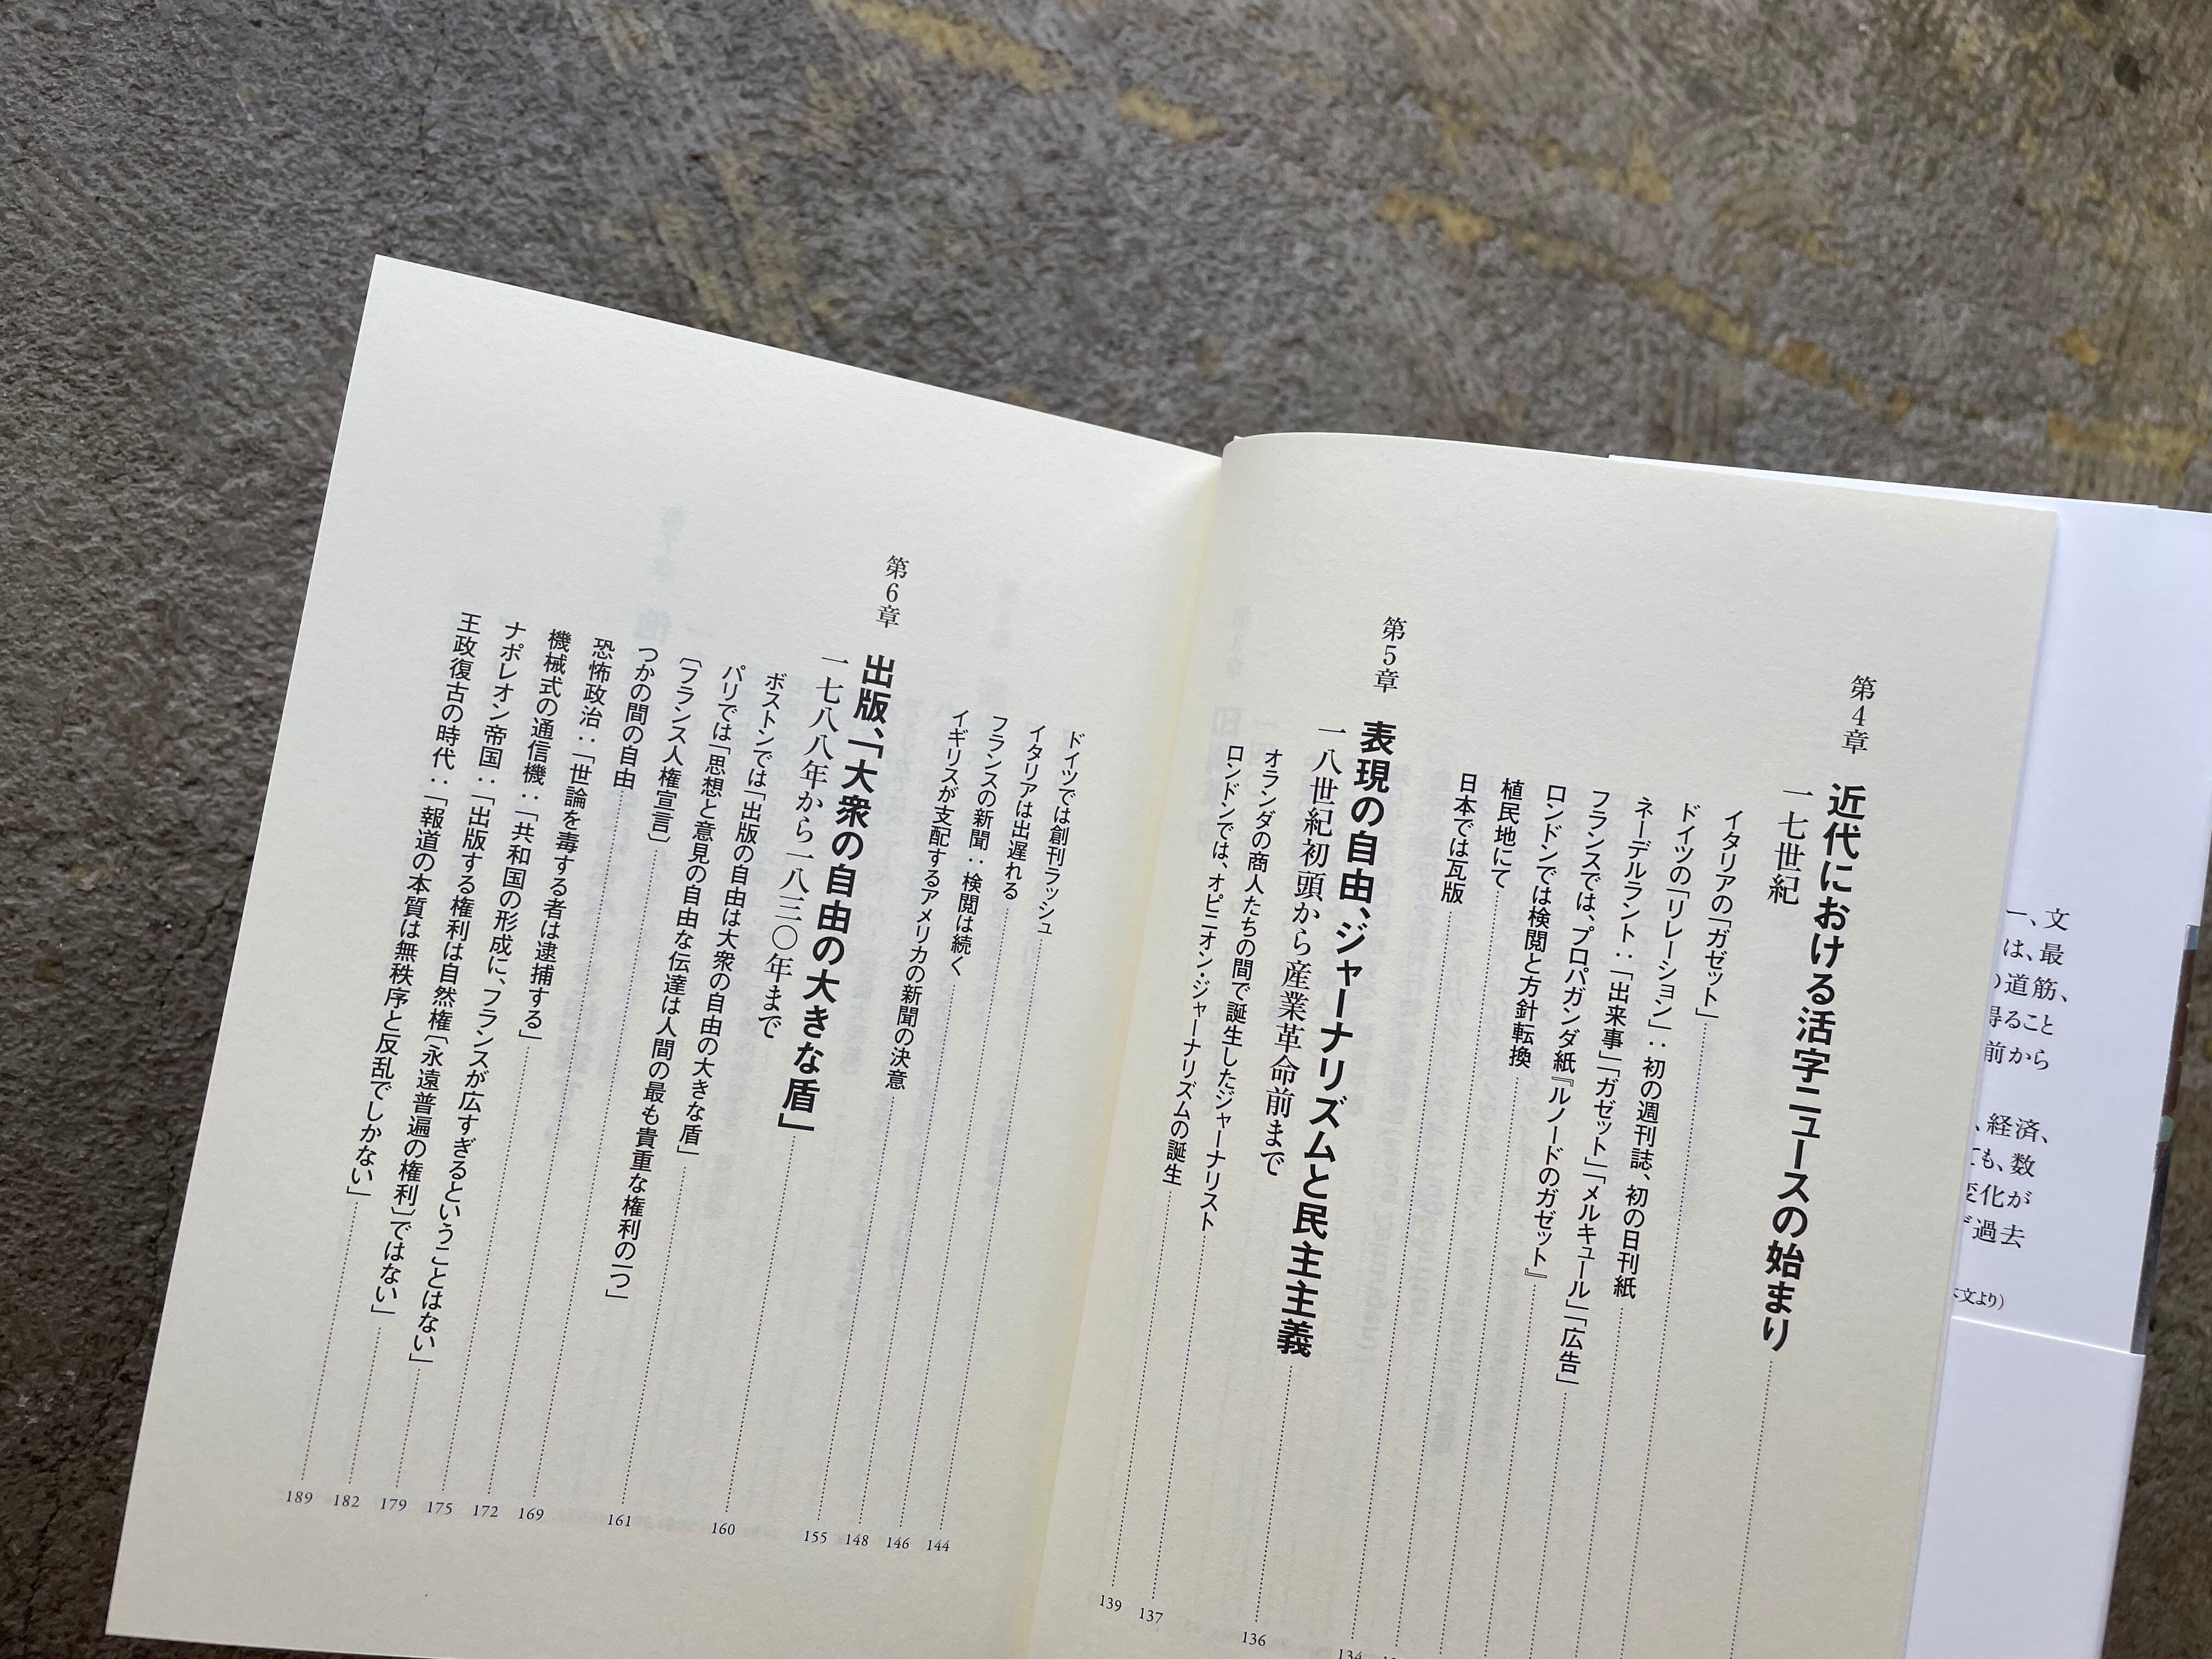 第4章 近代における活字ニュースの始まり
一七世紀
イタリアの「ガゼット」
ドイツの「リレーション」：初の週刊誌、初の日刊紙
ネーデルラント：「出来事」「ガゼット」「メルキュール」「広告」
フランスでは、プロパガンダ紙『ルノードのガゼット』
ロンドンでは検閲と方針転換
植民地にて
日本では瓦版 134
第5章 表現の自由、ジャーナリズムと民主主義 136
一八世紀初頭から産業革命前まで
オランダの商人たちの間で誕生したジャーナリスト 137
ロンドンでは、オピニオン・ジャーナリズムの誕生 139
ドイツでは創刊ラッシュ 144
イタリアは出遅れる 146
フランスの新聞：検閲は続く 148
イギリスが支配するアメリカの新聞の決意 155
第6章 出版、「大衆の自由の大きな盾」 160
一七八八年から一八三〇年まで
ボストンでは「出版の自由は大衆の自由の大きな盾」 161
パリでは「思想と意見の自由な伝達は人間の最も貴重な権利の一つ」
〔フランス人権宣言〕 169
つかの間の自由 172
恐怖政治：「世論を毒する者は逮捕する」 175
機械式の通信機：「共和国の形成に、フランスが広すぎるということはない」 179
ナポレオン帝国：「出版する権利は自然権〔永遠普遍の権利〕ではない」 182
王政復古の時代：「報道の本質は無秩序と反乱でしかない」 189
一、文
は、最
道筋、
得ること
前から
、経済、
も、数
変化が
過去
文より）